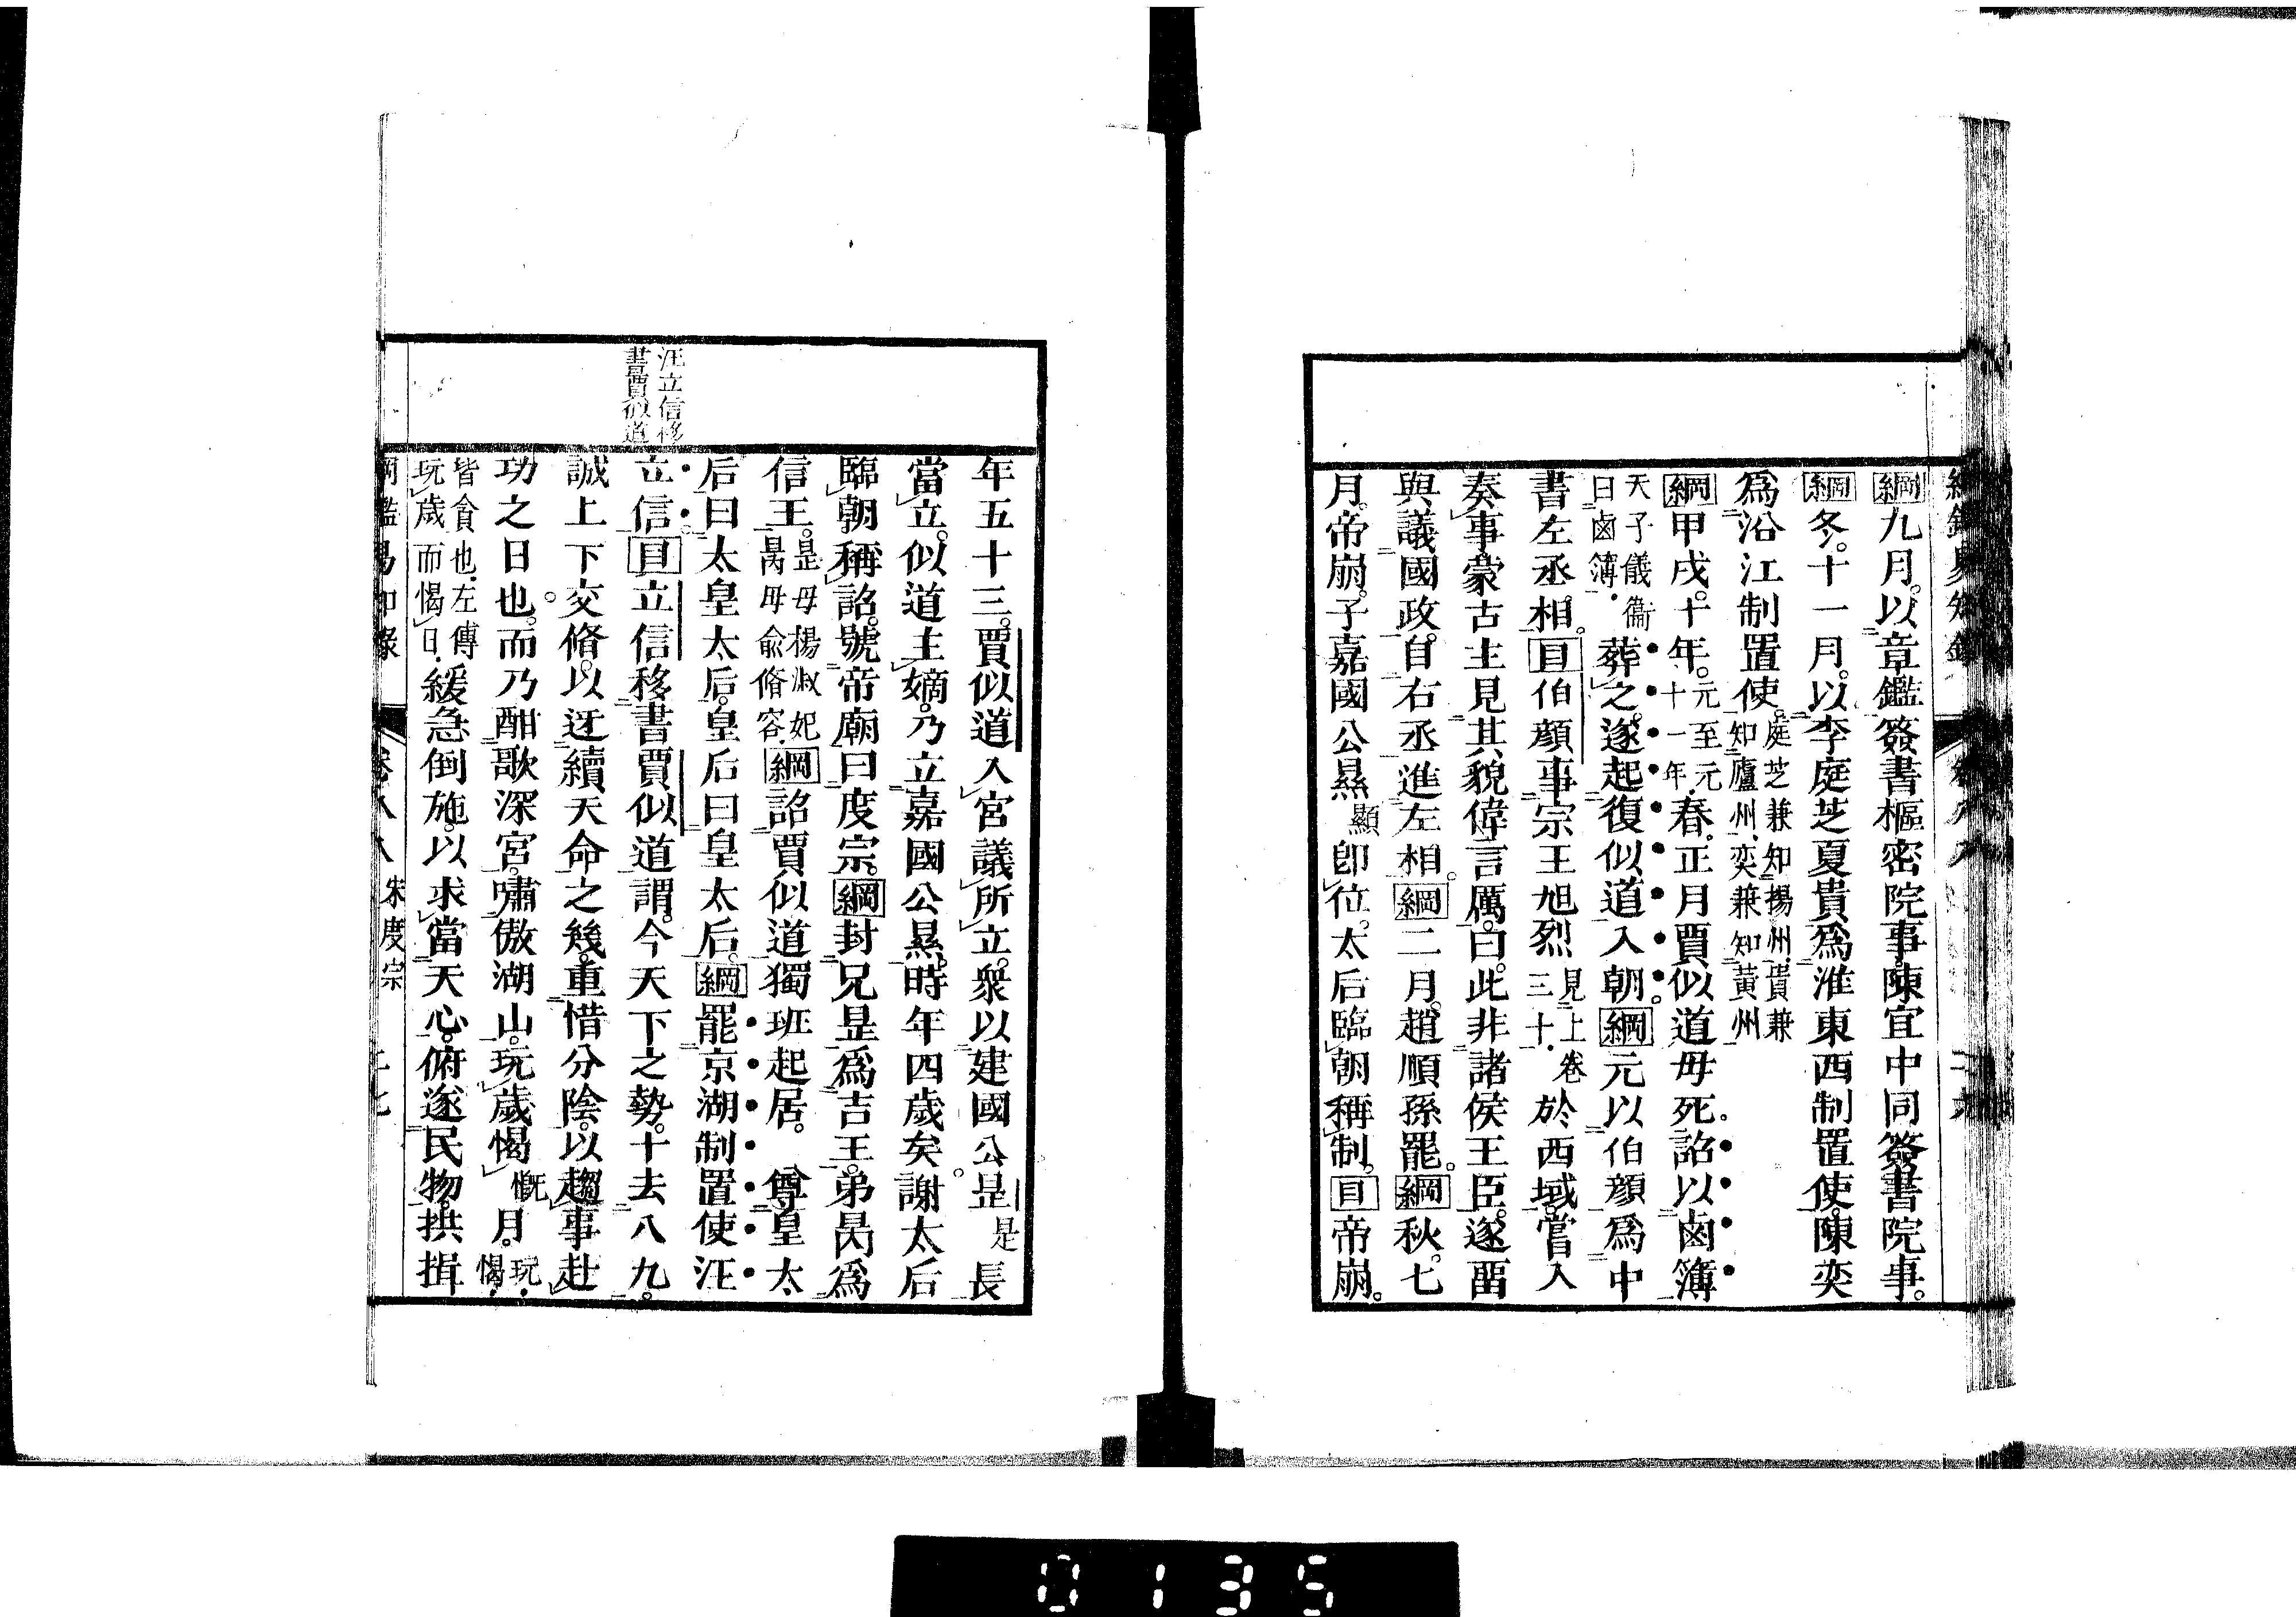 綱九月。以章鑑簽書樞密院事。陳宜中同簽書院事。
綱冬。十一月。以李庭芝夏貴爲淮東西制置使。陳奕
爲沿江制置使。庭芝兼知揚州。貴兼
知廬州。奕兼知黃州
綱甲戌。十年。元至元
十一年。春。正月賈似道母死。詔以鹵簿
天子儀衞
曰鹵簿。葬之。遂起復似道入朝。綱元以伯顔爲中
書左丞相。目伯顔事宗王旭烈見上卷
三十。於西域。嘗入
奏事。蒙古主見其貌偉言厲。曰。此非諸侯王臣。遂畱
與議國政。自右丞進左相。綱二月。趙順孫罷。綱秋。七
月。帝崩。子嘉國公㬎顯卽位。太后臨朝稱制。目帝崩。
年五十三。賈似道入宮議所立。衆以建國公昰是長
當立。似道主嫡。乃立嘉國公㬎。時年四歲矣。謝太后
臨朝稱詔。號帝廟曰度宗。綱封兄昰爲吉王。弟昺爲
信王。昰母楊淑妃
昺母兪脩容。綱詔賈似道獨班起居。尊皇太
后曰太皇太后。皇后曰皇太后。綱罷京湖制置使汪
立信目立信移書賈似道謂。今天下之勢。十去八九。
誠上下交脩。以迓續天命之幾。重惜分陰。以趨事赴
功之日也。而乃酣歌深宮。嘯傲湖山。玩歲愒慨月。玩。愒。
皆貪也。左傳
玩歲而愒日。緩急倒施。以求當天心。俯遂民物。拱揖
汪立信移
書賈似道
宋度宗